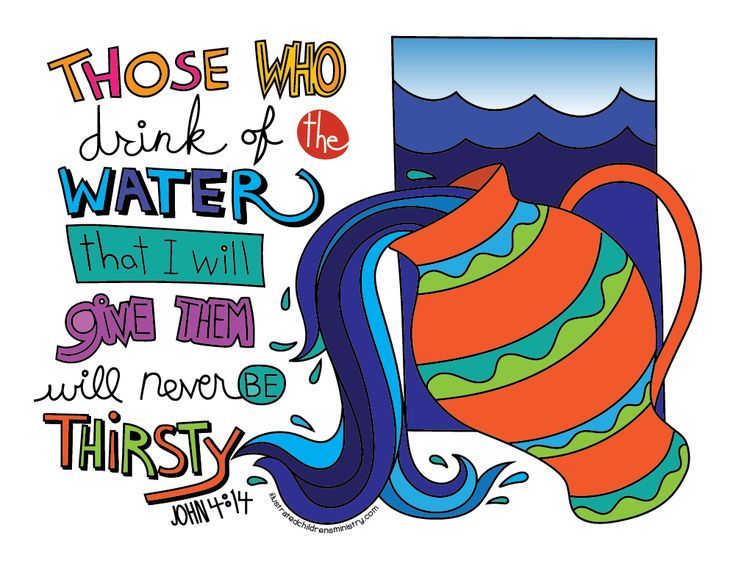 THOSE WHO
drink of the
WATER
that I will
give THEM
will never BE
THIRSTY
JOHN 4:14
illustratedchildrensministry.com